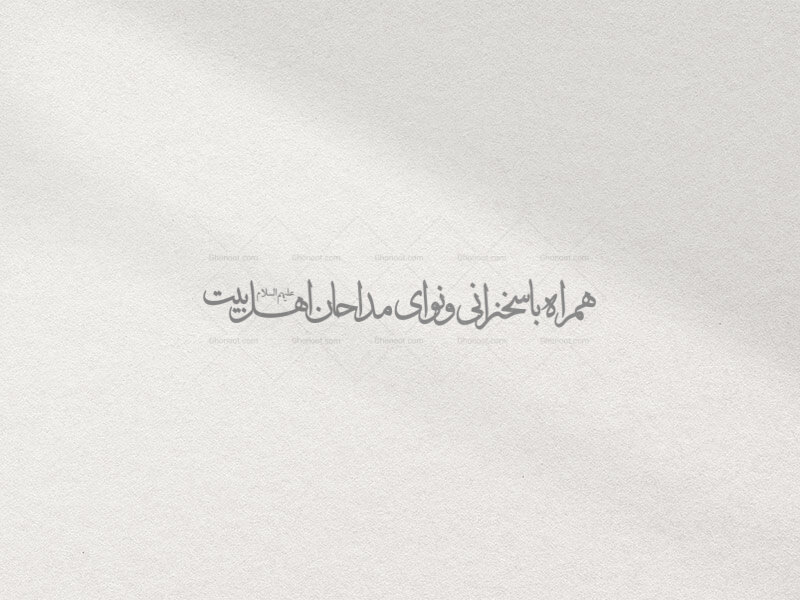 Ghonoot.com Ghonoot.com Ghonoot.com Ghonoot.com Ghonoot.com
همراه با سخنرانی و نوای مداحان اهل بیت علیهم السلام
Ghonoot.com Ghonoot.com Ghonoot.com Ghonoot.com Ghonoot.com